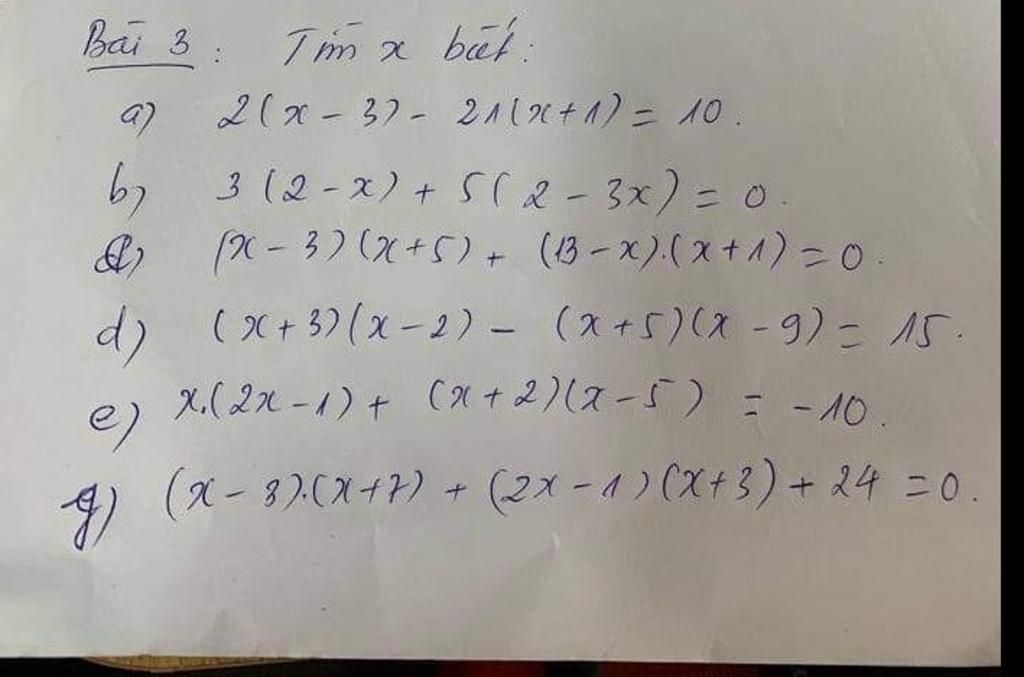 Bài 3 : Tìm x biết :
a) 2(x - 3) - 21(x+1) = 10.
b) 3(2-x) + 5(2-3x) = 0.
c) (x-3)(x+5) + (13-x).(x+1) = 0.
d) (x+3)(x-2) - (x+5)(x-9) = 15.
e) x.(2x-1) + (x+2)(x-5) = -10.
g) (x-3).(x+7) + (2x-1)(x+3) + 24 = 0.